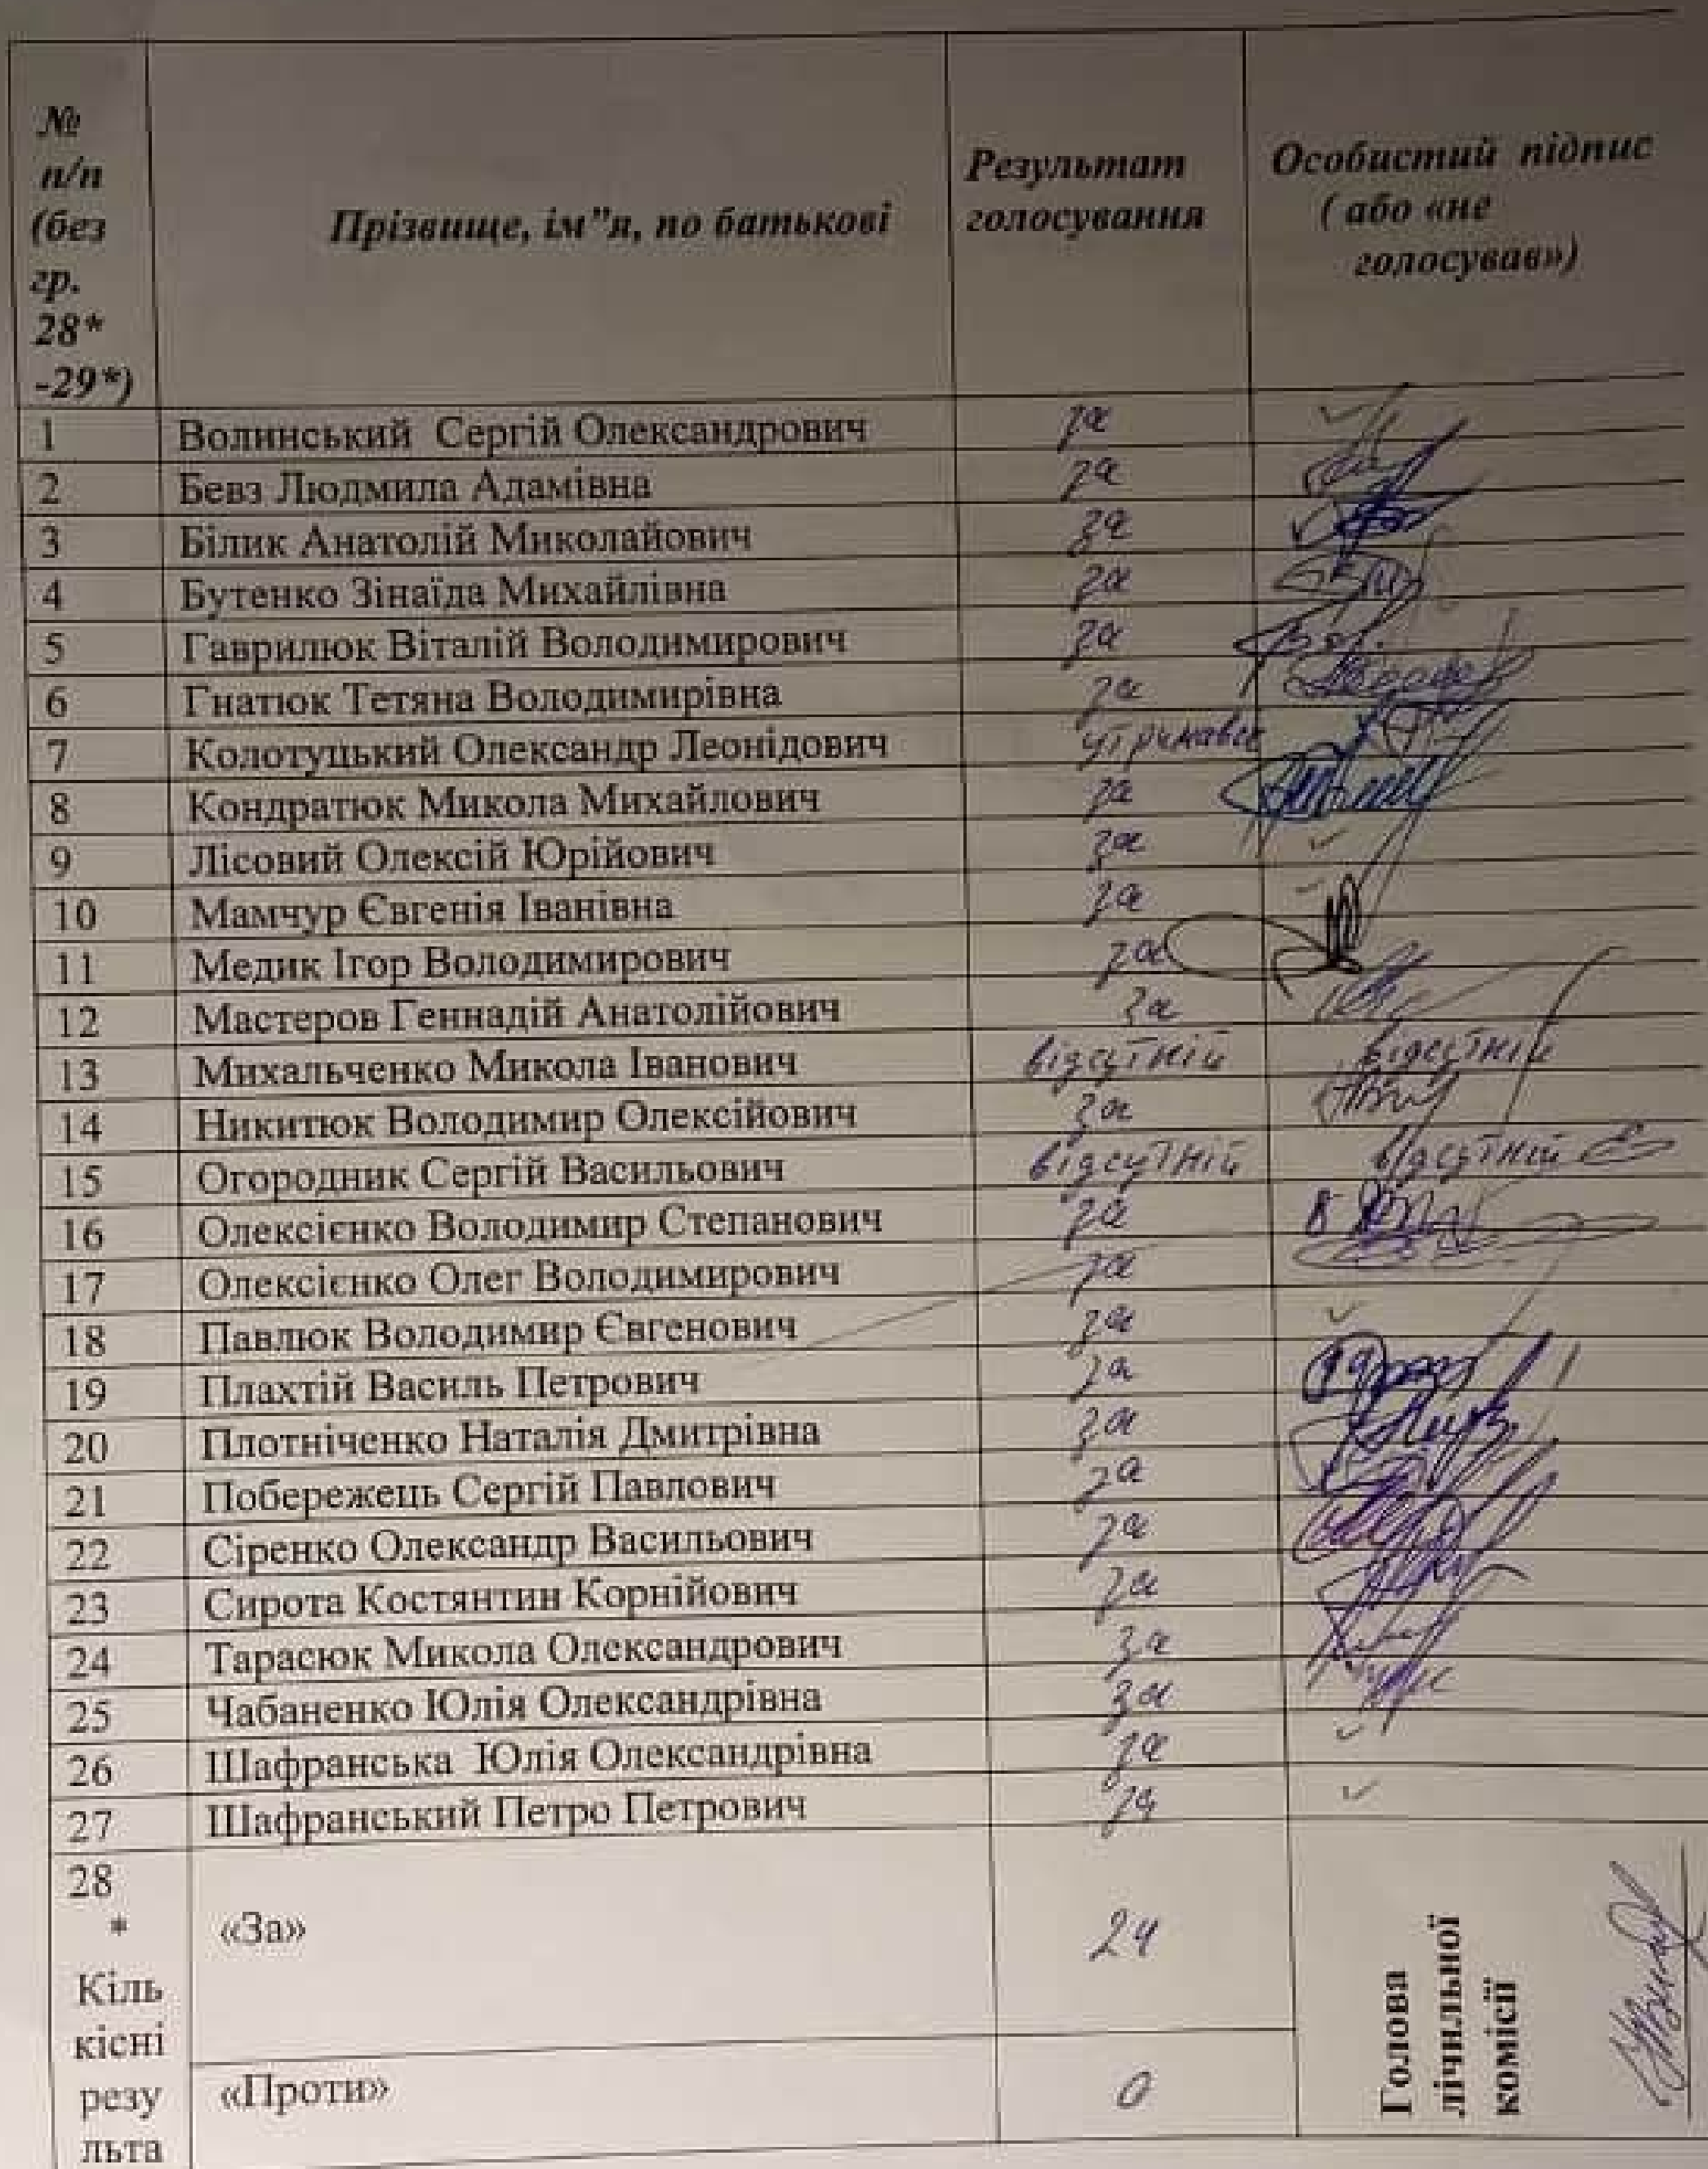 №
п/п
(без
гр.
28*
-29*)
Прізвище, ім"я, по батькові
Результат
голосування
Особистий підпис
( або «не
голосував»)
1 Волинський Сергій Олександрович за
2 Бевз Людмила Адамівна за
3 Білик Анатолій Миколайович за
4 Бутенко Зінаїда Михайлівна за
5 Гаврилюк Віталій Володимирович за
6 Гнатюк Тетяна Володимирівна за
7 Колотуцький Олександр Леонідович утримався
8 Кондратюк Микола Михайлович за
9 Лісовий Олексій Юрійович за
10 Мамчур Євгенія Іванівна за
11 Медик Ігор Володимирович за
12 Мастеров Геннадій Анатолійович за
13 Михальченко Микола Іванович відсутній відсутній
14 Никитюк Володимир Олексійович за
15 Огородник Сергій Васильович відсутній відсутній
16 Олексієнко Володимир Степанович за
17 Олексієнко Олег Володимирович за
18 Павлюк Володимир Євгенович за
19 Плахтій Василь Петрович за
20 Плотніченко Наталія Дмитрівна за
21 Побережець Сергій Павлович за
22 Сіренко Олександр Васильович за
23 Сирота Костянтин Корнійович за
24 Тарасюк Микола Олександрович за
25 Чабаненко Юлія Олександрівна за
26 Шафранська Юлія Олександрівна за
27 Шафранський Петро Петрович за
28
*
Кіль
кісні
резу
льта
«За» 24
«Проти» 0
Голова
лічильної
комісії